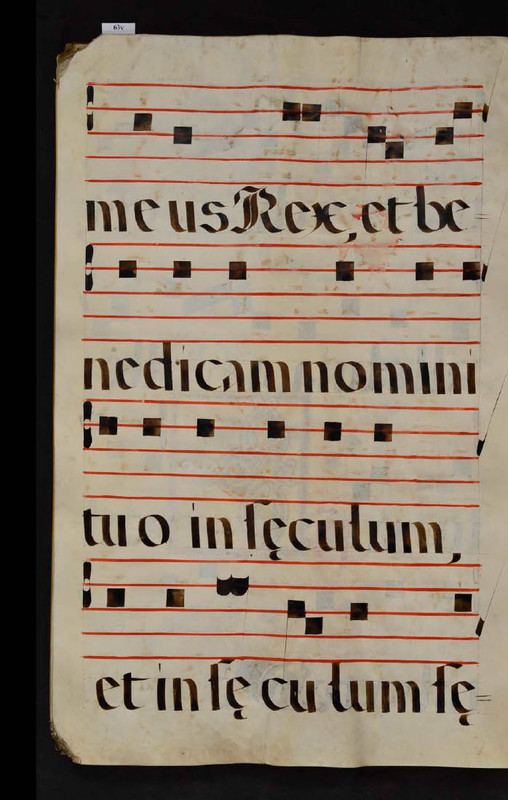 63v.
meus Rex, et be=
nedicam nomini
tuo in ſęculum,
et in ſęculum ſę=